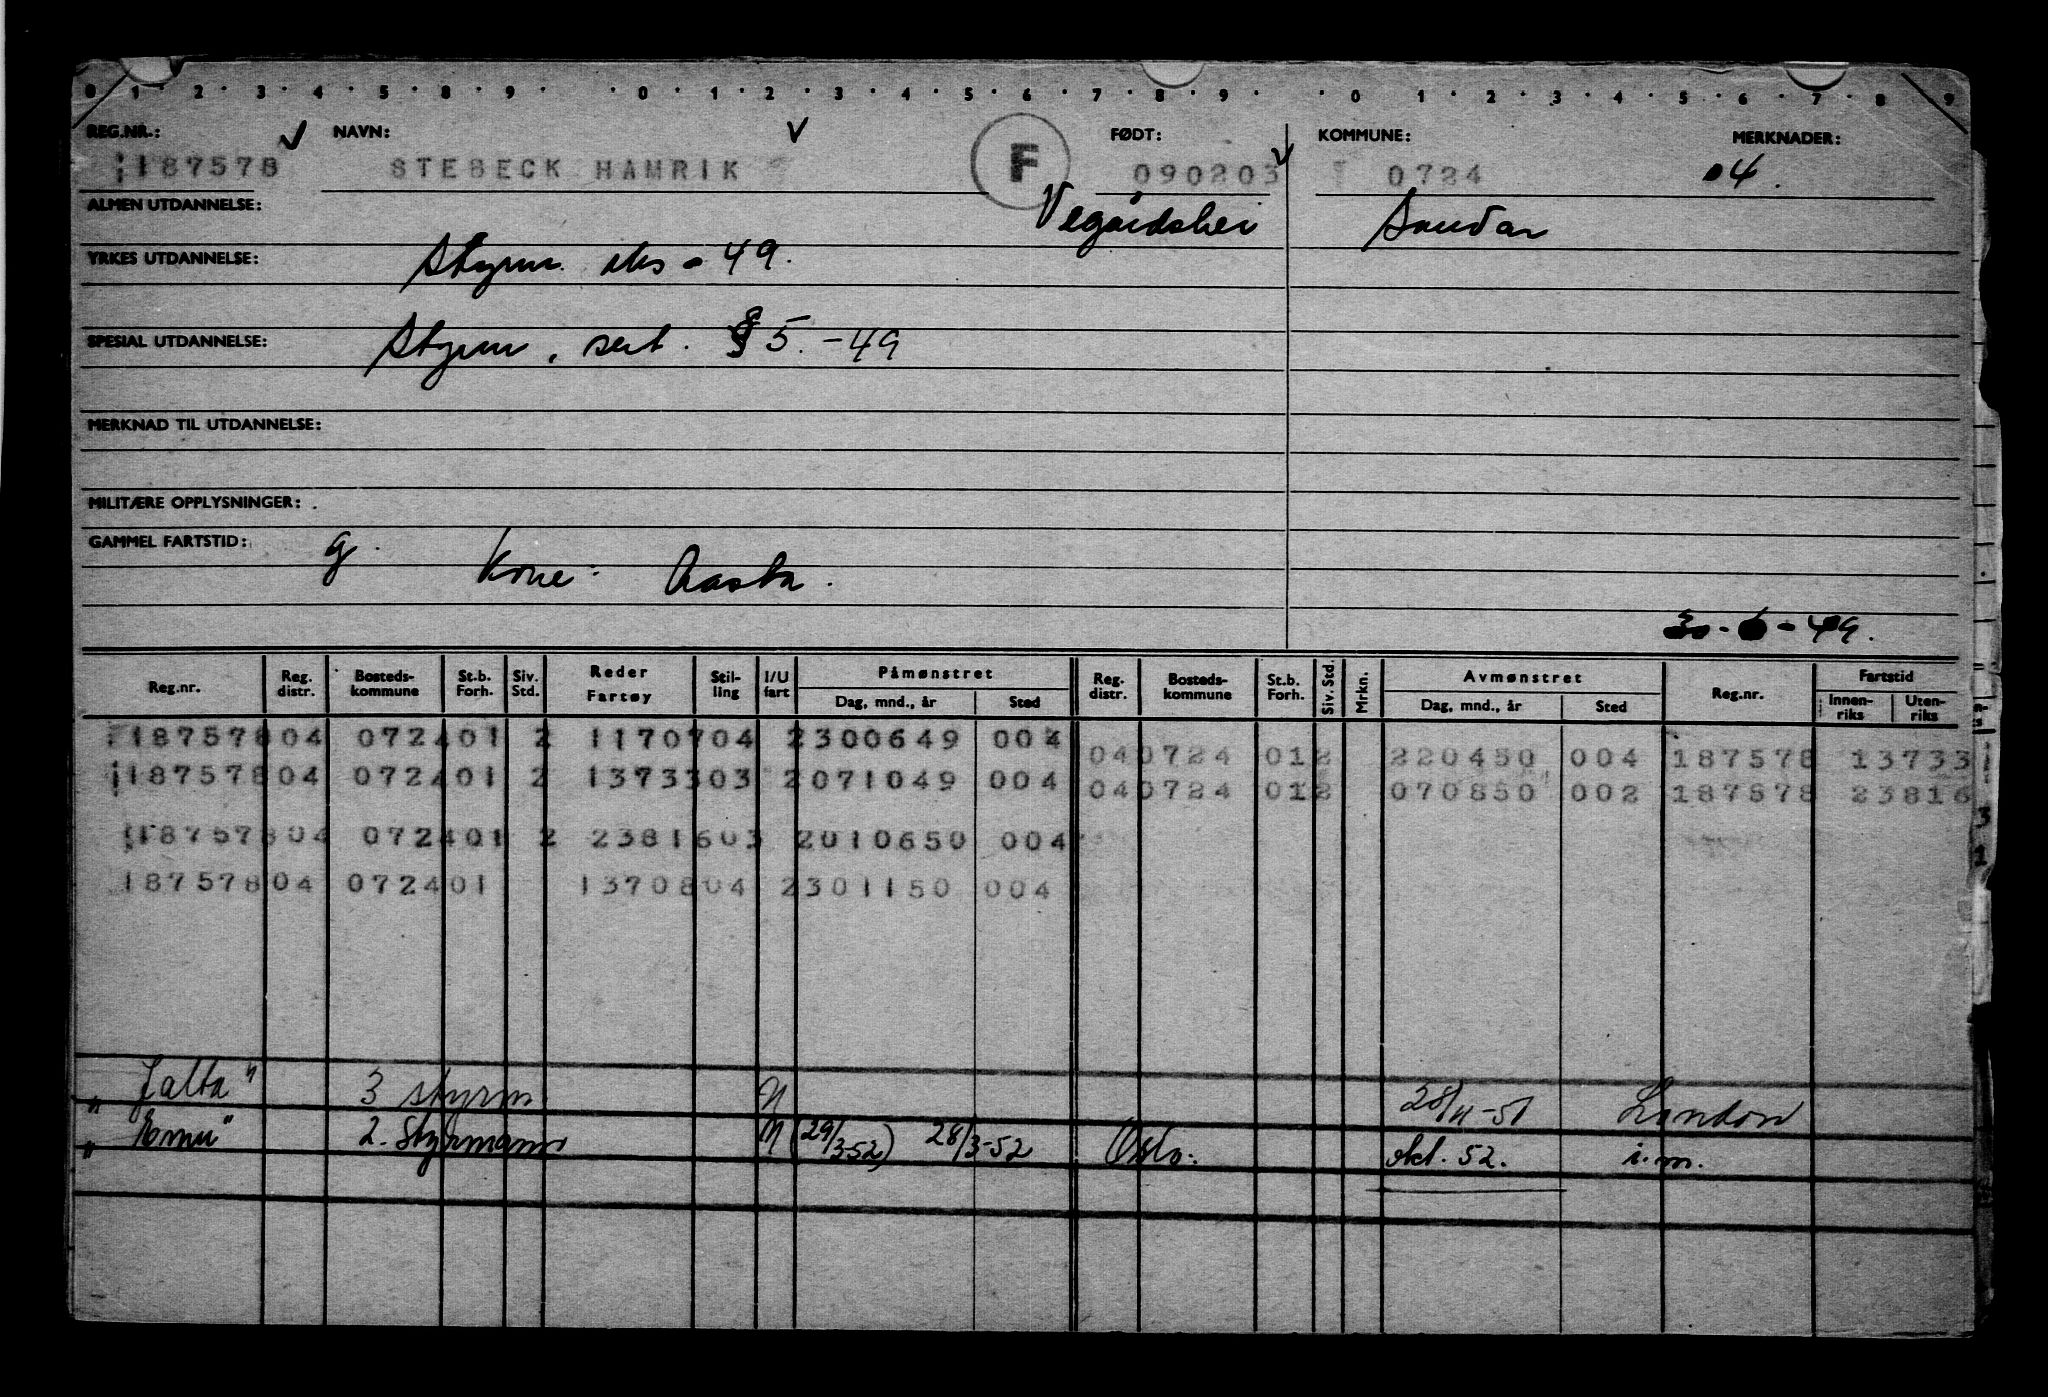 0 · 1 · 2 · 3 · 4 · 5 · 8 · 9 · · 0 · 1 · 2 · 3 · 4 · 5 · 6 · 7 · 8 · 9 · · 0 · 1 · 2 · 3 · 4 · 5 · 6 · 7 · 8 · 9
REG.NR.: NAVN: FØDT: KOMMUNE: MERKNADER:
187578 STEBECK HAMRIK F 090203 0724 04.
ALMEN UTDANNELSE: Vegårdshei Sandar
YRKES UTDANNELSE: Styrm. eks - 49.
SPESIAL UTDANNELSE: Styrm. sert. § 5. - 49
MERKNAD TIL UTDANNELSE:
MILITÆRE OPPLYSNINGER:
GAMMEL FARTSTID: g. Kone: Aasta.
30-6-49.
Reg.nr. Reg. distr. Bosteds-kommune St.b. Forh. Siv. Std. Reder Fartøy Stil-ling I/U fart Påmønstret Reg. distr. Bosteds-kommune St.b. Forh. Siv. Std. Mrkn. Avmønstret Reg.nr. Fartstid
Dag, mnd., år Sted Dag, mnd., år Sted Innen-riks Uten-riks
187578 04 0724 01 2 11707 04 2 300649 004 04 0724 01 2 220450 004 187578 13733
187578 04 0724 01 2 13733 03 2 071049 004 04 0724 01 2 070850 002 187578 23816
187578 04 0724 01 2 23816 03 2 010650 004
187578 04 0724 01 13708 04 2 301150 004
"Jalta" 3 styrm 28/11-51 London
"Emu" 2. Styrmann (29/3 52) 28/3-52 Oslo. okt. 52. i.m.